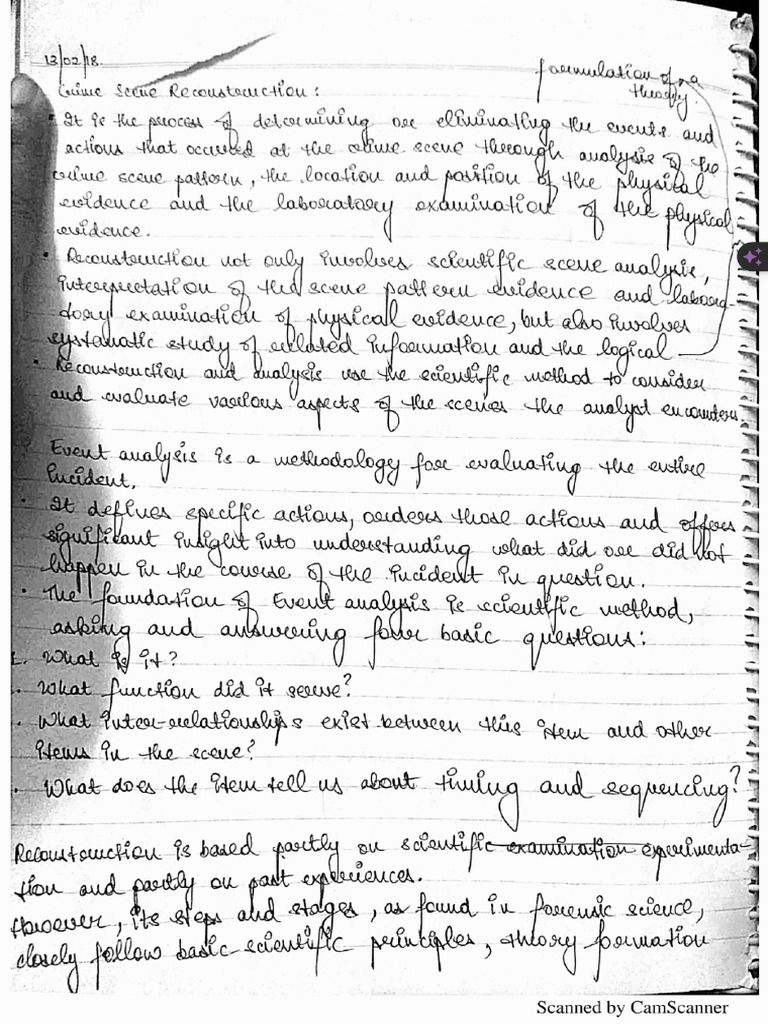 13/02/18.
formulation of a
theory.
Crime Scene Reconstruction:
• It is the process of determining or eliminating the events and
actions that occurred at the crime scene through analysis of the
crime scene pattern, the location and position of the physical
evidence and the laboratory examination of the physical
evidence.
• Reconstruction not only involves scientific scene analysis,
interpretation of the scene pattern evidence and labora-
tory examination of physical evidence, but also involves
systematic study of related information and the logical
• Reconstruction and analysis use the scientific method to consider
and evaluate various aspects of the scenes the analyst encounters.
Event analysis is a methodology for evaluating the entire
incident.
• It defines specific actions, orders those actions and offers
significant insight into understanding what did or did not
happen in the course of the incident in question.
• The foundation of Event analysis is scientific method,
asking and answering four basic questions:
1. What is it?
. What function did it serve?
. What inter-relationships exist between this item and other
items in the scene?
. What does the item tell us about timing and sequencing?
Reconstruction is based partly on scientific examination experimenta-
tion and partly on past experiences.
However, its steps and stages, as found in forensic science,
closely follow basic scientific principles, theory formation
Scanned by CamScanner